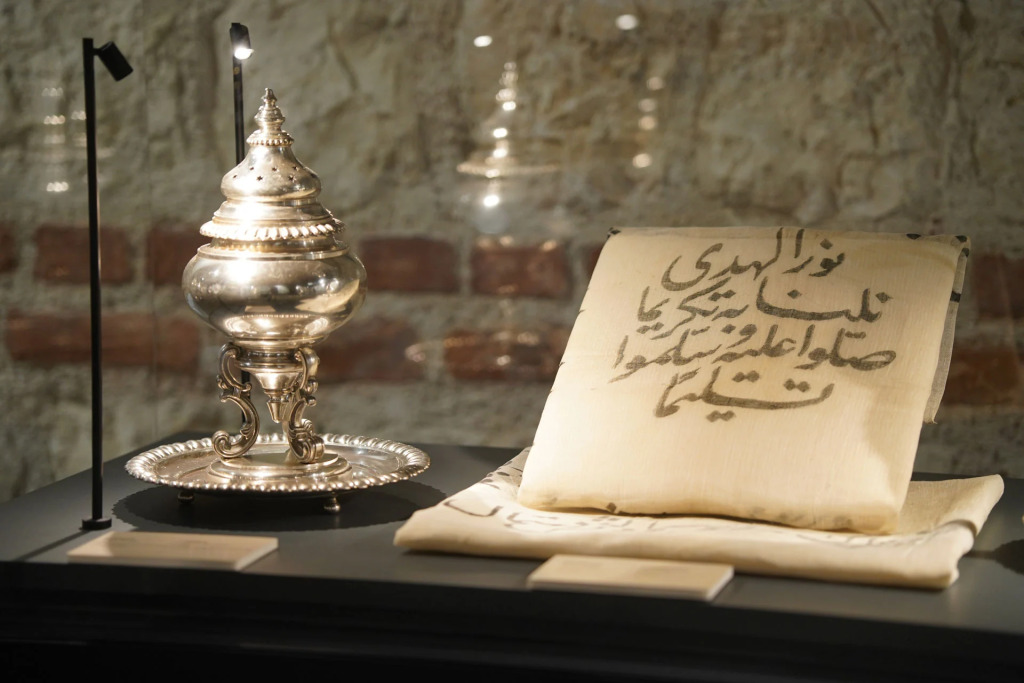 نور الهدى
نلنا به تكريما
صلوا عليه وسلموا
تسليما